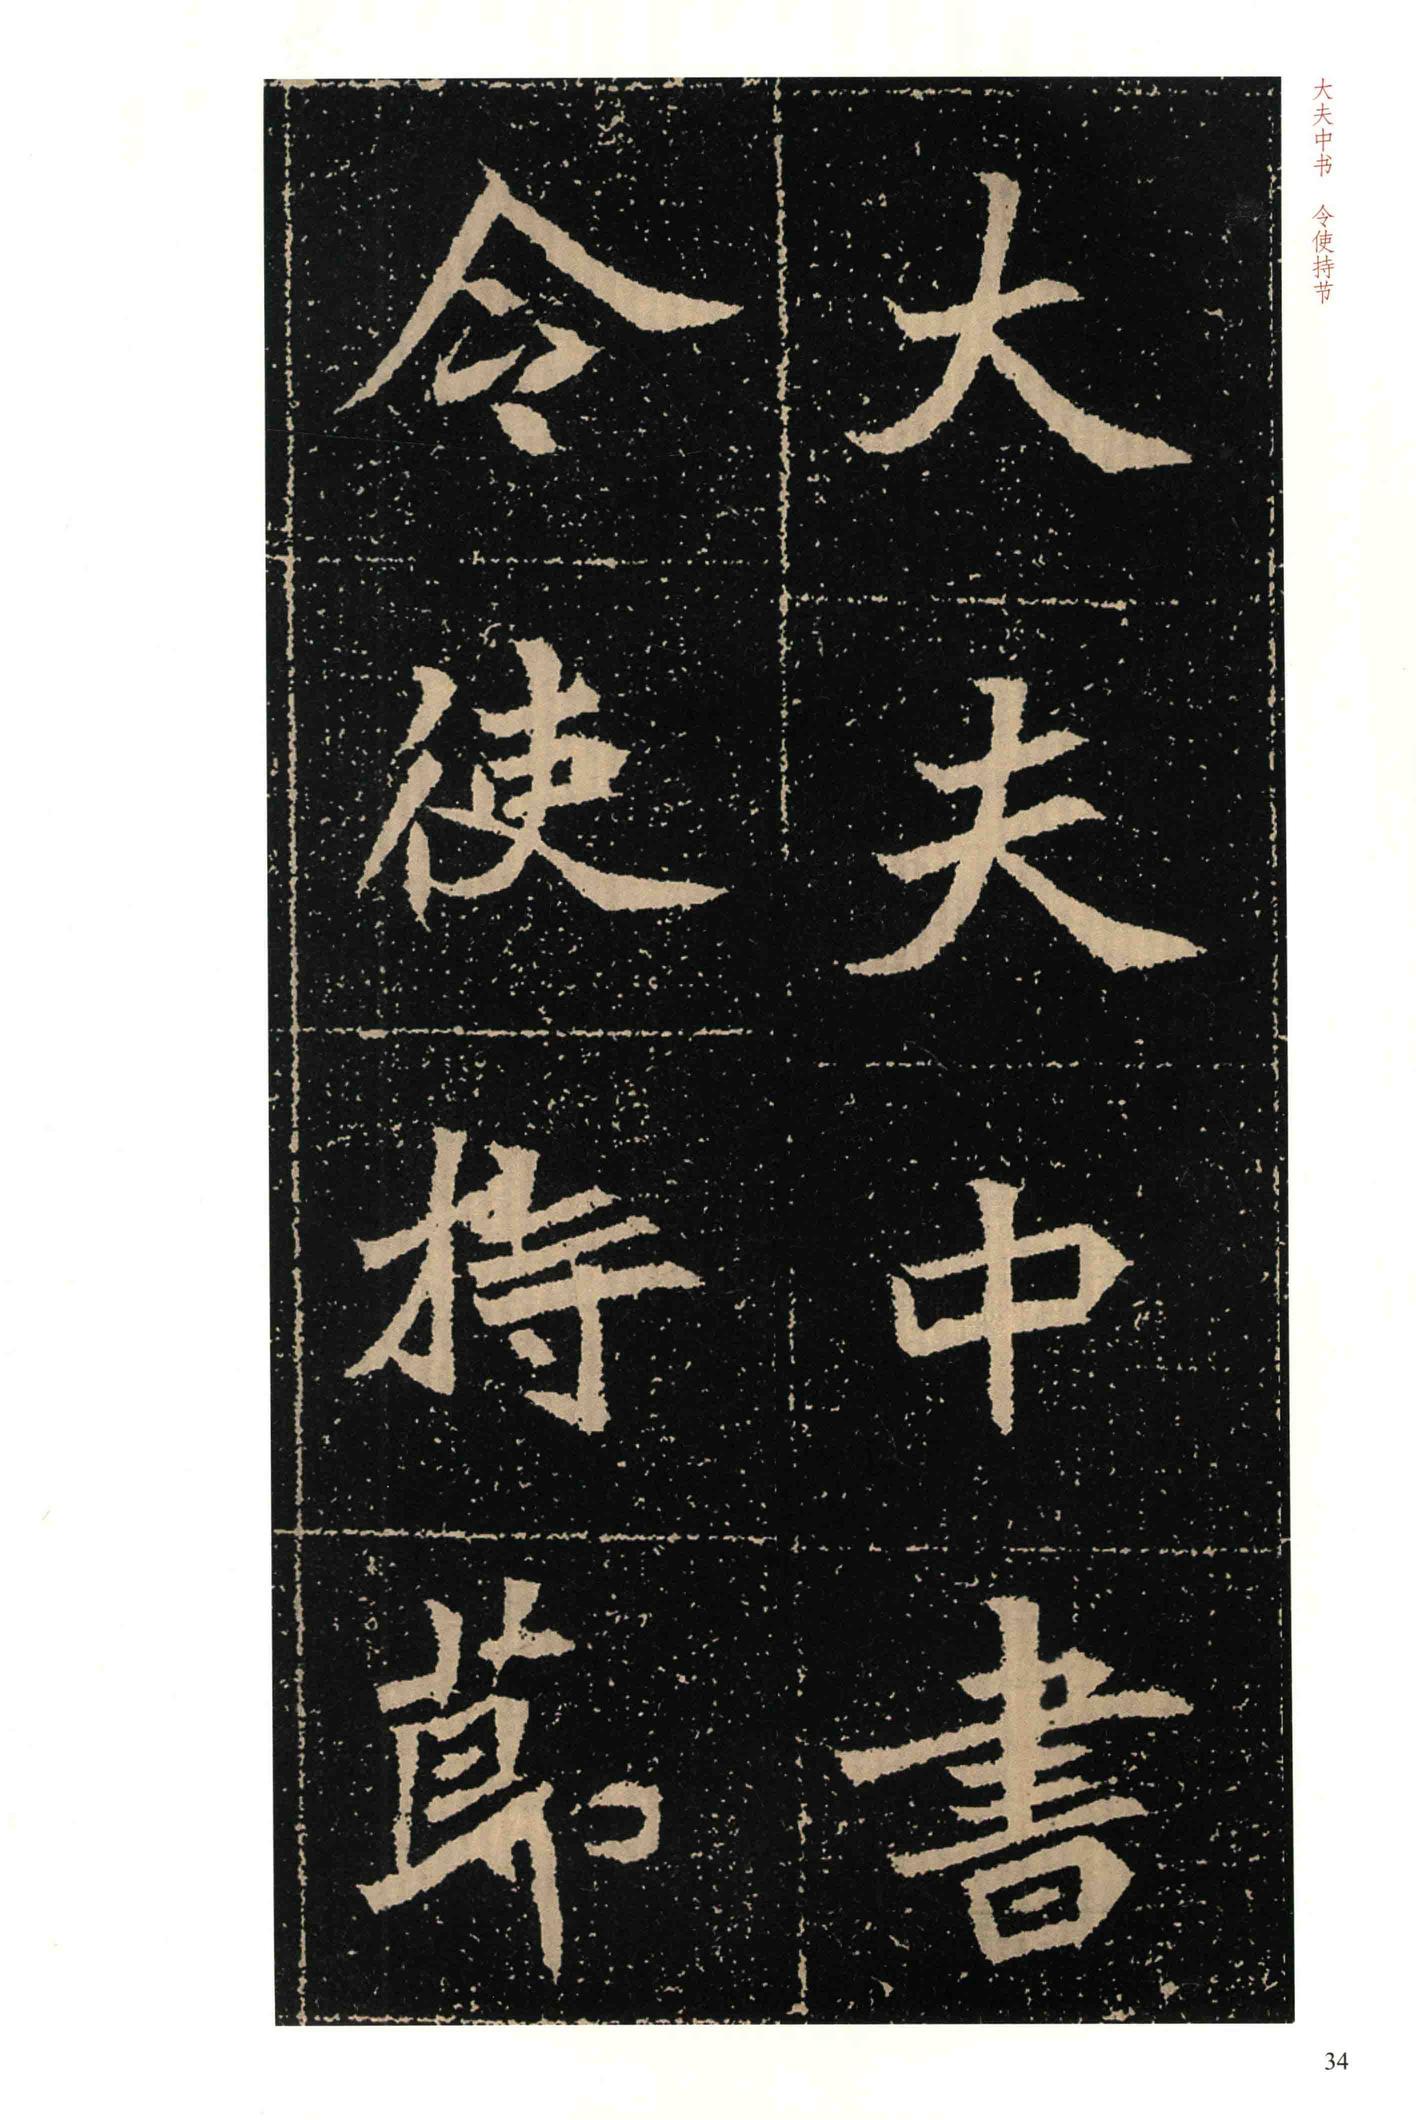 大夫中书　令使持节
大夫中書
令使持莭
34